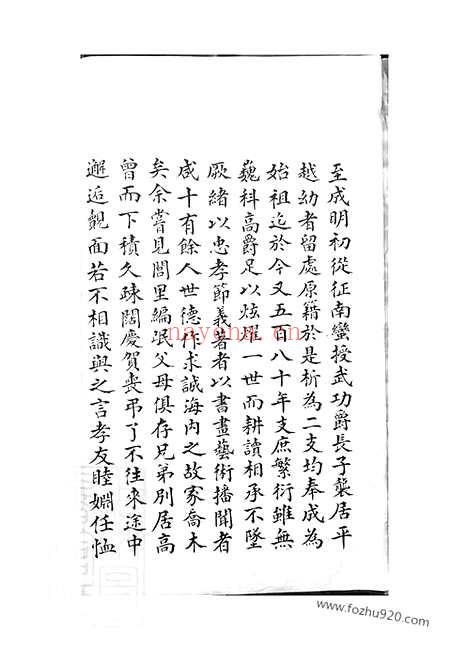 至成明初從征南蠻授武功爵長子襲居平
越幼者留處原籍於是析為二支均奉成為
始祖迄於今又五八十年支庶繁衍雖無
巍科高爵足以炫 一世而耕讀相承不墜
厥緒以忠孝節義著者以書畫藝術播聞者
咸十有餘人世德作求誠海内之故家喬木
矣余嘗見閭里編氓父母俱存兄弟別居高
曾而下積久疎闊慶賀喪弔了不往來途中
邂逅覿面若不相識與之言孝友睦婣任恤
nayona.cn
www.fozhu920.com